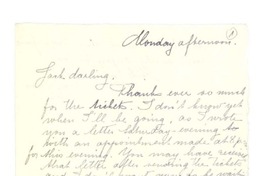 1
Monday afternoon.
Jack darling,
Thanks ever so much
for the tickets. I don't know yet
when I'll be going, as I wrote
you a letter Saturday evening
with an appointment made at
for this evening. You may have received
that letter after sending the tickets